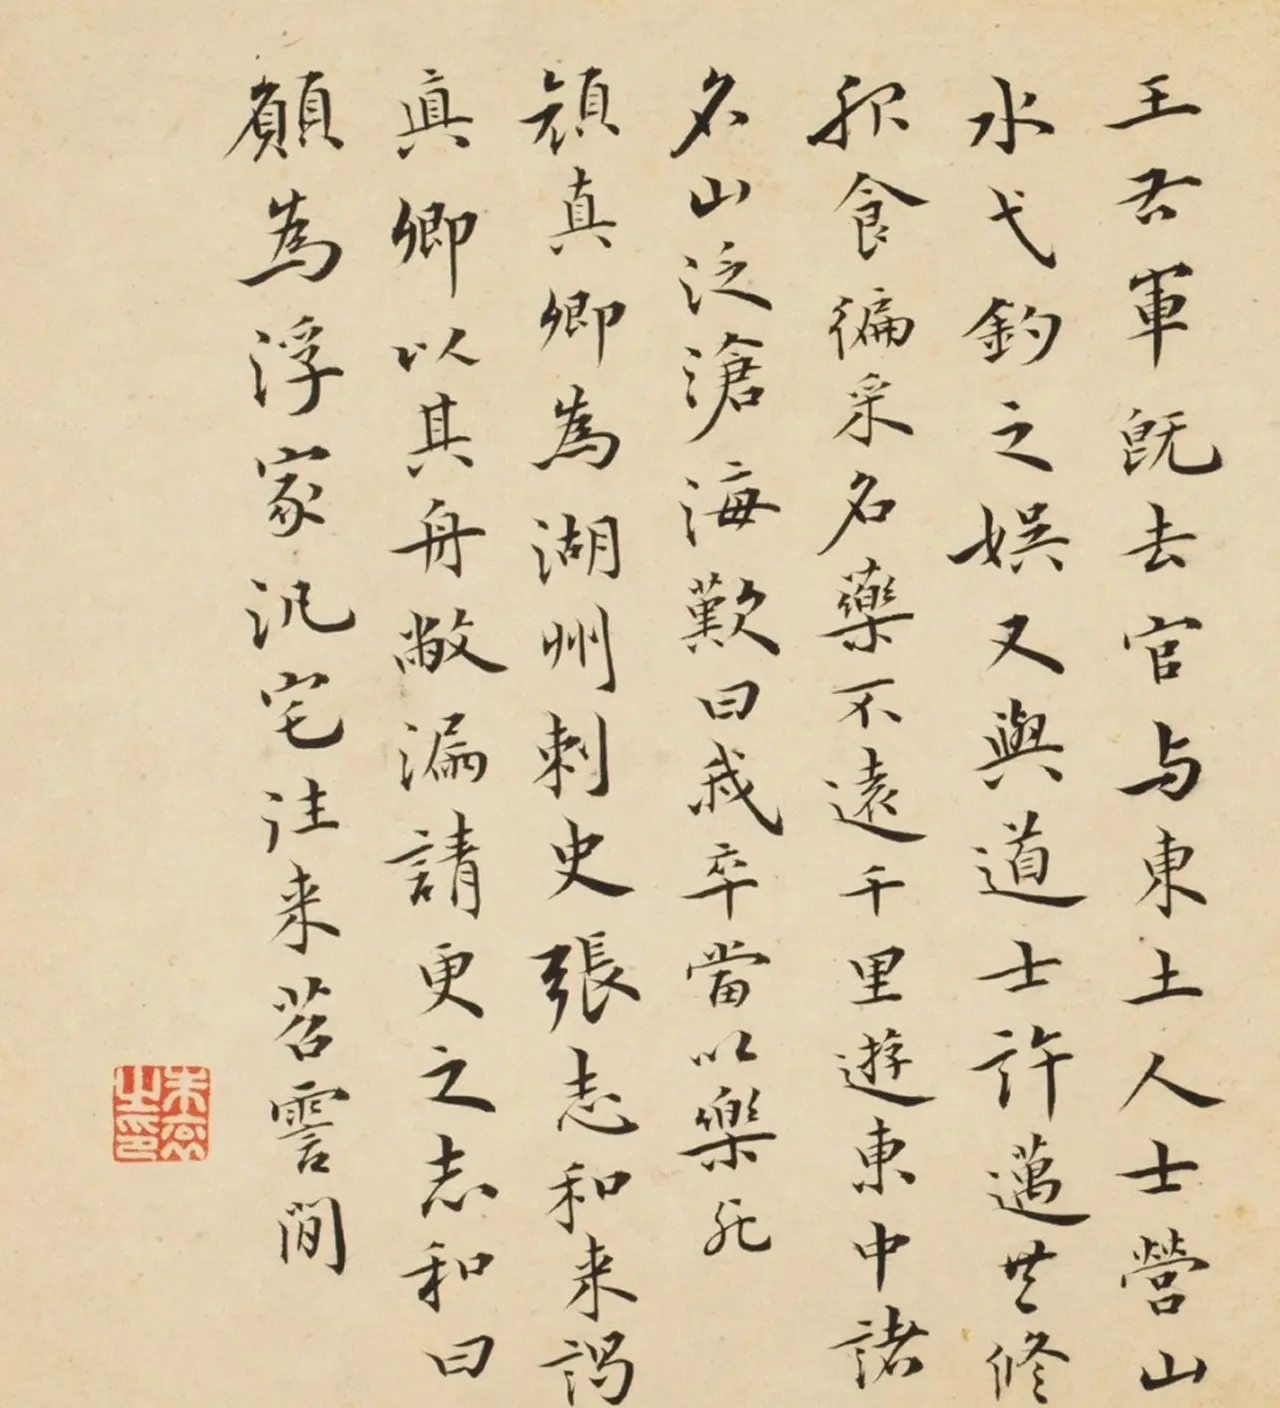 王右軍既去官与東土人士營山
水弋釣之娛又與道士許邁共修
服食徧采名藥不遠千里遊東中諸
名山泛滄海歎曰我卒當以樂死
顔真卿為湖州刺史張志和来謁
真卿以其舟敝漏請更之志和曰
願為浮家汎宅往来苕霅間